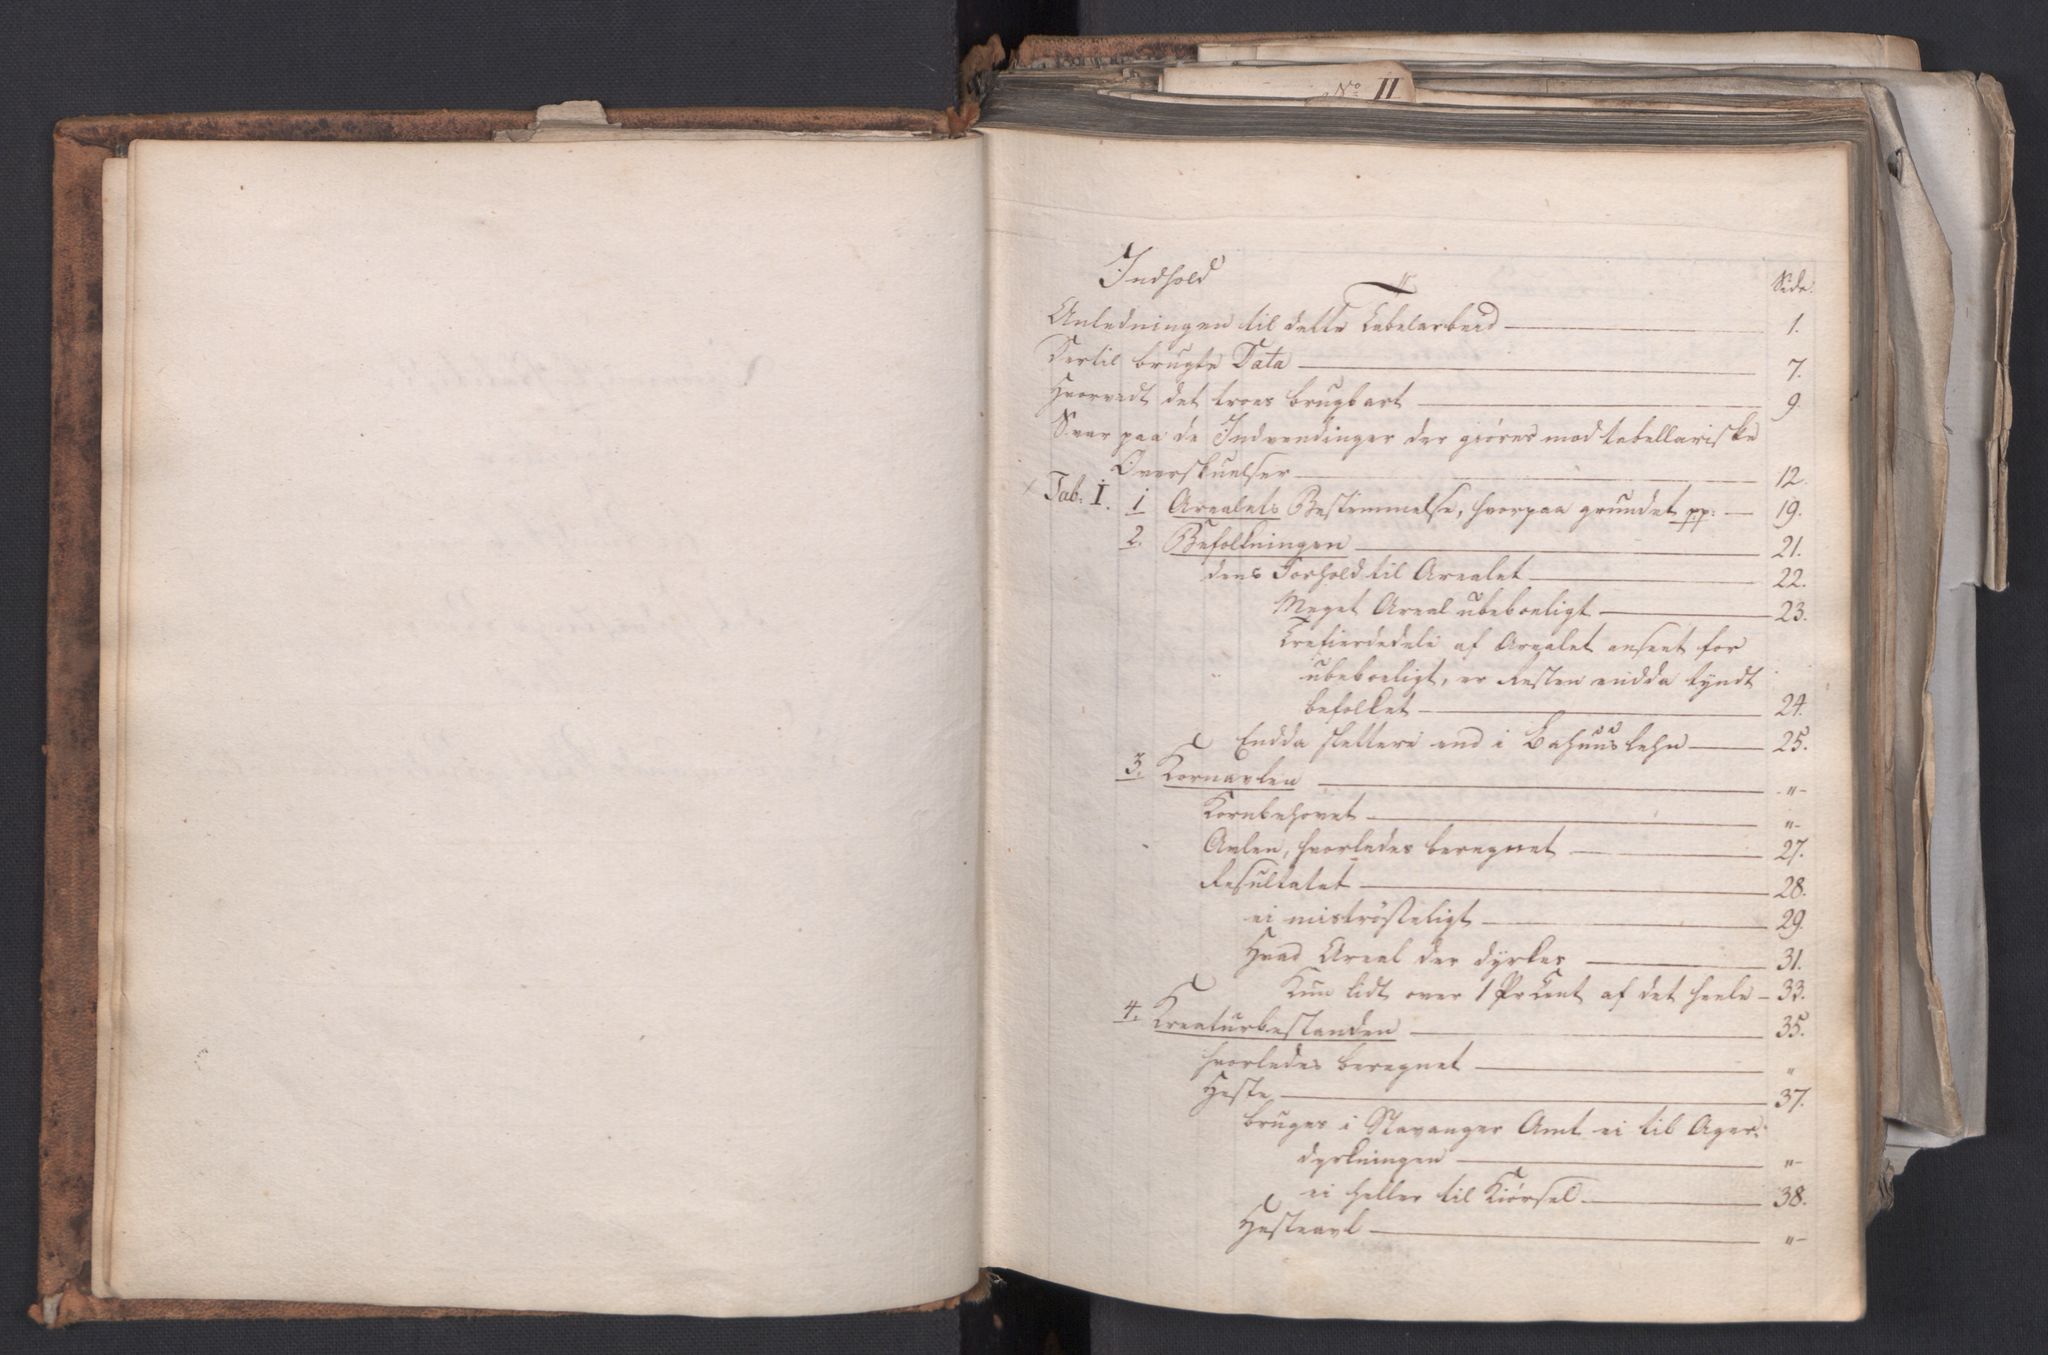 No II
Indhold Side.
Anledningen til dette Tabelarbeid 1.
Dertil brugte Data 7.
Hvorvidt det troes brugbart 9
Svar paa de Indvendinger der giöres mod tabellariske
Overskuelser 12.
Tab. I. 1 Arealets Bestemmelse, hvorpaa grundet pp: 19.
2. Befolkningen 21.
dens Forhold til Arealet 22.
Meget Areal ubeboeligt 23.
Trefierdedele af Arealet anseet for
ubeboeligt, er Resten endda tyndt
befolket 24.
Endda slettere end i Bahuuslehn 25.
3. Kornavlen "
Kornbehovet "
Avlen, hvorledes beregnet 27.
Resultatet 28.
ei miströsteligt 29.
Hvad Areal der dyrkes 31.
Kun lidt over 1 PrCent af det heele 33.
4. Kreaturbestanden 35.
hvorledes beregnet "
Heste 37.
bruges i Stavanger Amt ei til Ager-
dyrkningen "
ei heller til Kiörsel 38.
Hesteavl "